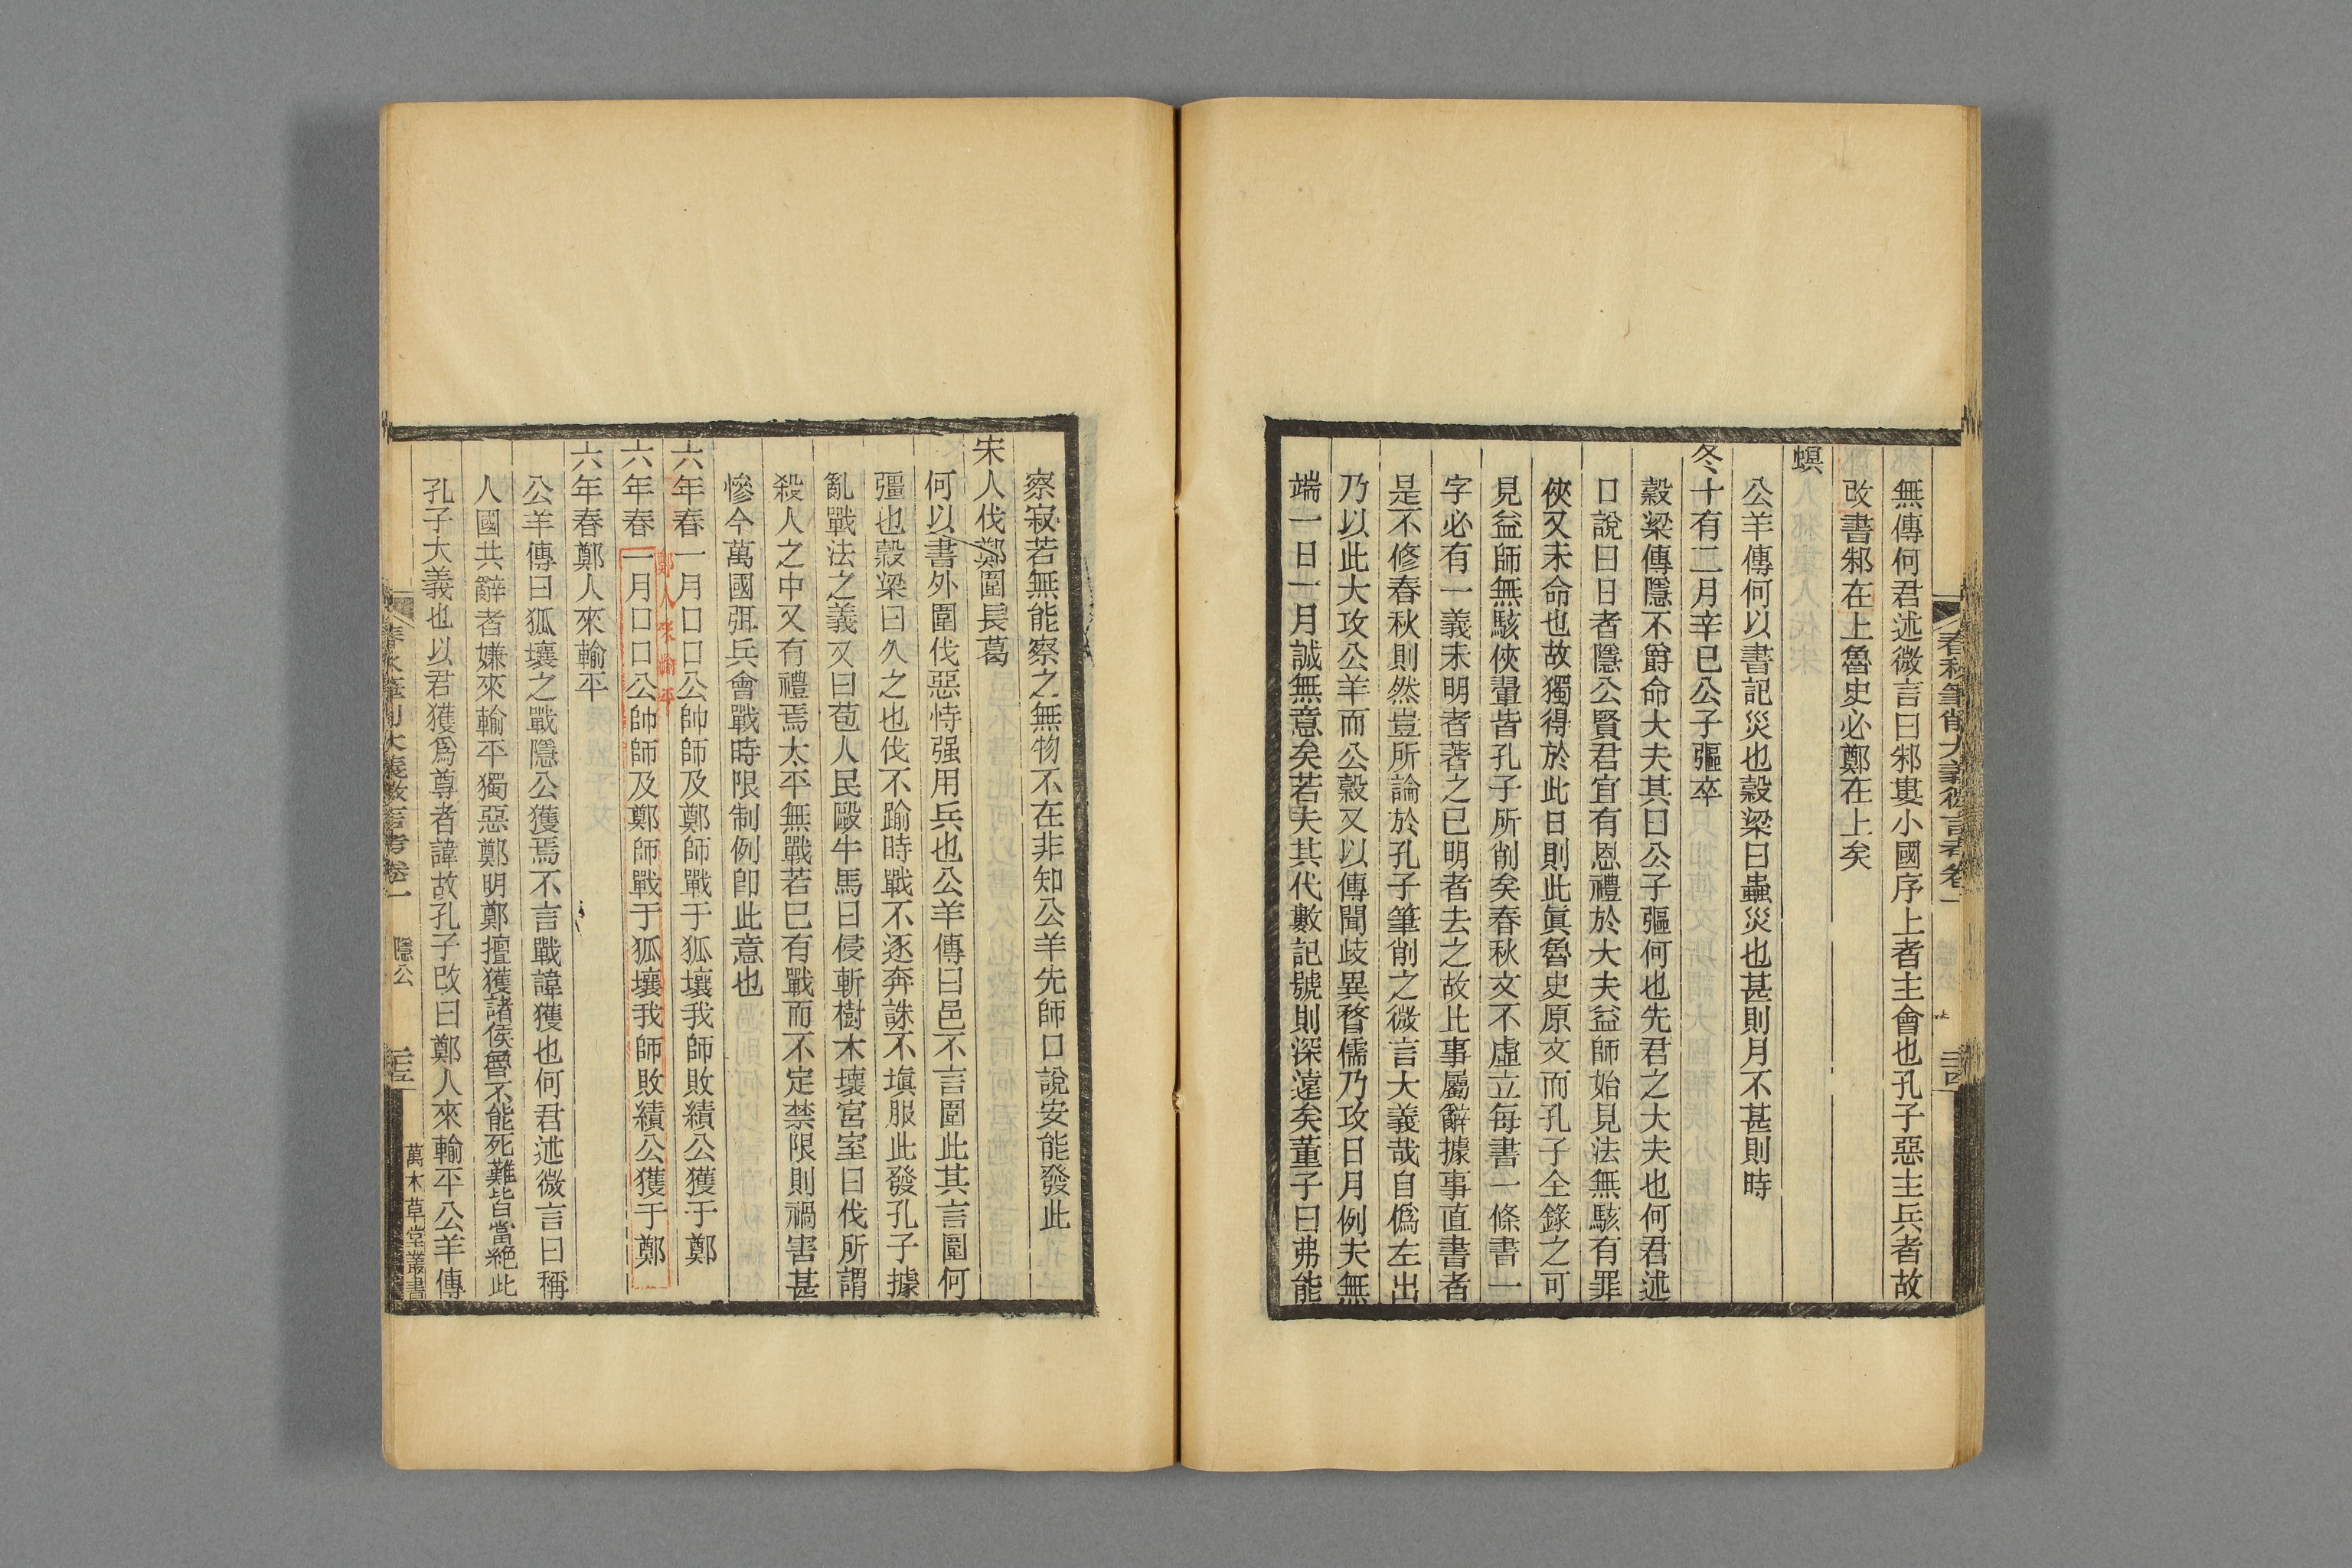 春秋筆削大義微言考卷一
無傳何君述微言曰邾婁小國序上者主會也孔子惡主兵者故
改書邾在上魯史必鄭在上矣
螟
公羊傳何以書記災也穀梁曰蟲災也甚則月不甚則時
冬十有二月辛巳公子彄卒
穀梁傳隱不爵命大夫其曰公子彄何也先君之大夫也何君述
口說曰日者隱公賢君宜有恩禮於大夫益師始見法無駭有罪
俠又未命也故獨得於此日則此眞魯史原文而孔子全錄之可
見益師無駭俠翬皆孔子所削矣春秋文不虛立每書一條書一
字必有一義未明者著之已明者去之故比事屬辭據事直書者
是不修春秋則然豈所論於孔子筆削之微言大義哉自僞左出
乃以此大攻公羊而公穀又以傳聞歧異瞀儒乃攻日月例夫無
端一日一月誠無意矣若夫其代數記號則深遠矣董子曰弗能
察寂若無能察之無物不在非知公羊先師口說安能發此
宋人伐鄭圍長葛
何以書外圍伐惡恃强用兵也公羊傳曰邑不言圍此其言圍何
彊也穀梁曰久之也伐不踰時戰不逐奔誅不塡服此發孔子據
亂戰法之義又曰苞人民毆牛馬曰侵斬樹木壞宮室曰伐所謂
殺人之中又有禮焉太平無戰若已有戰而不定禁限則禍害甚
慘今萬國弭兵會戰時限制例卽此意也
六年春一月口口公帥師及鄭師戰于狐壤我師敗績公獲于鄭
鄭人來輸平
六年春一月口口公帥師及鄭師戰于狐壤我師敗績公獲于鄭
六年春鄭人來輸平
公羊傳曰狐壤之戰隱公獲焉不言戰諱獲也何君述微言曰稱
人國共辭者嫌來輸平獨惡鄭明鄭擅獲諸侯魯不能死難皆當絕此
孔子大義也以君獲爲尊者諱故孔子改曰鄭人來輸平公羊傳
春秋筆削大義微言考卷一 隱公 三五 萬木草堂叢書